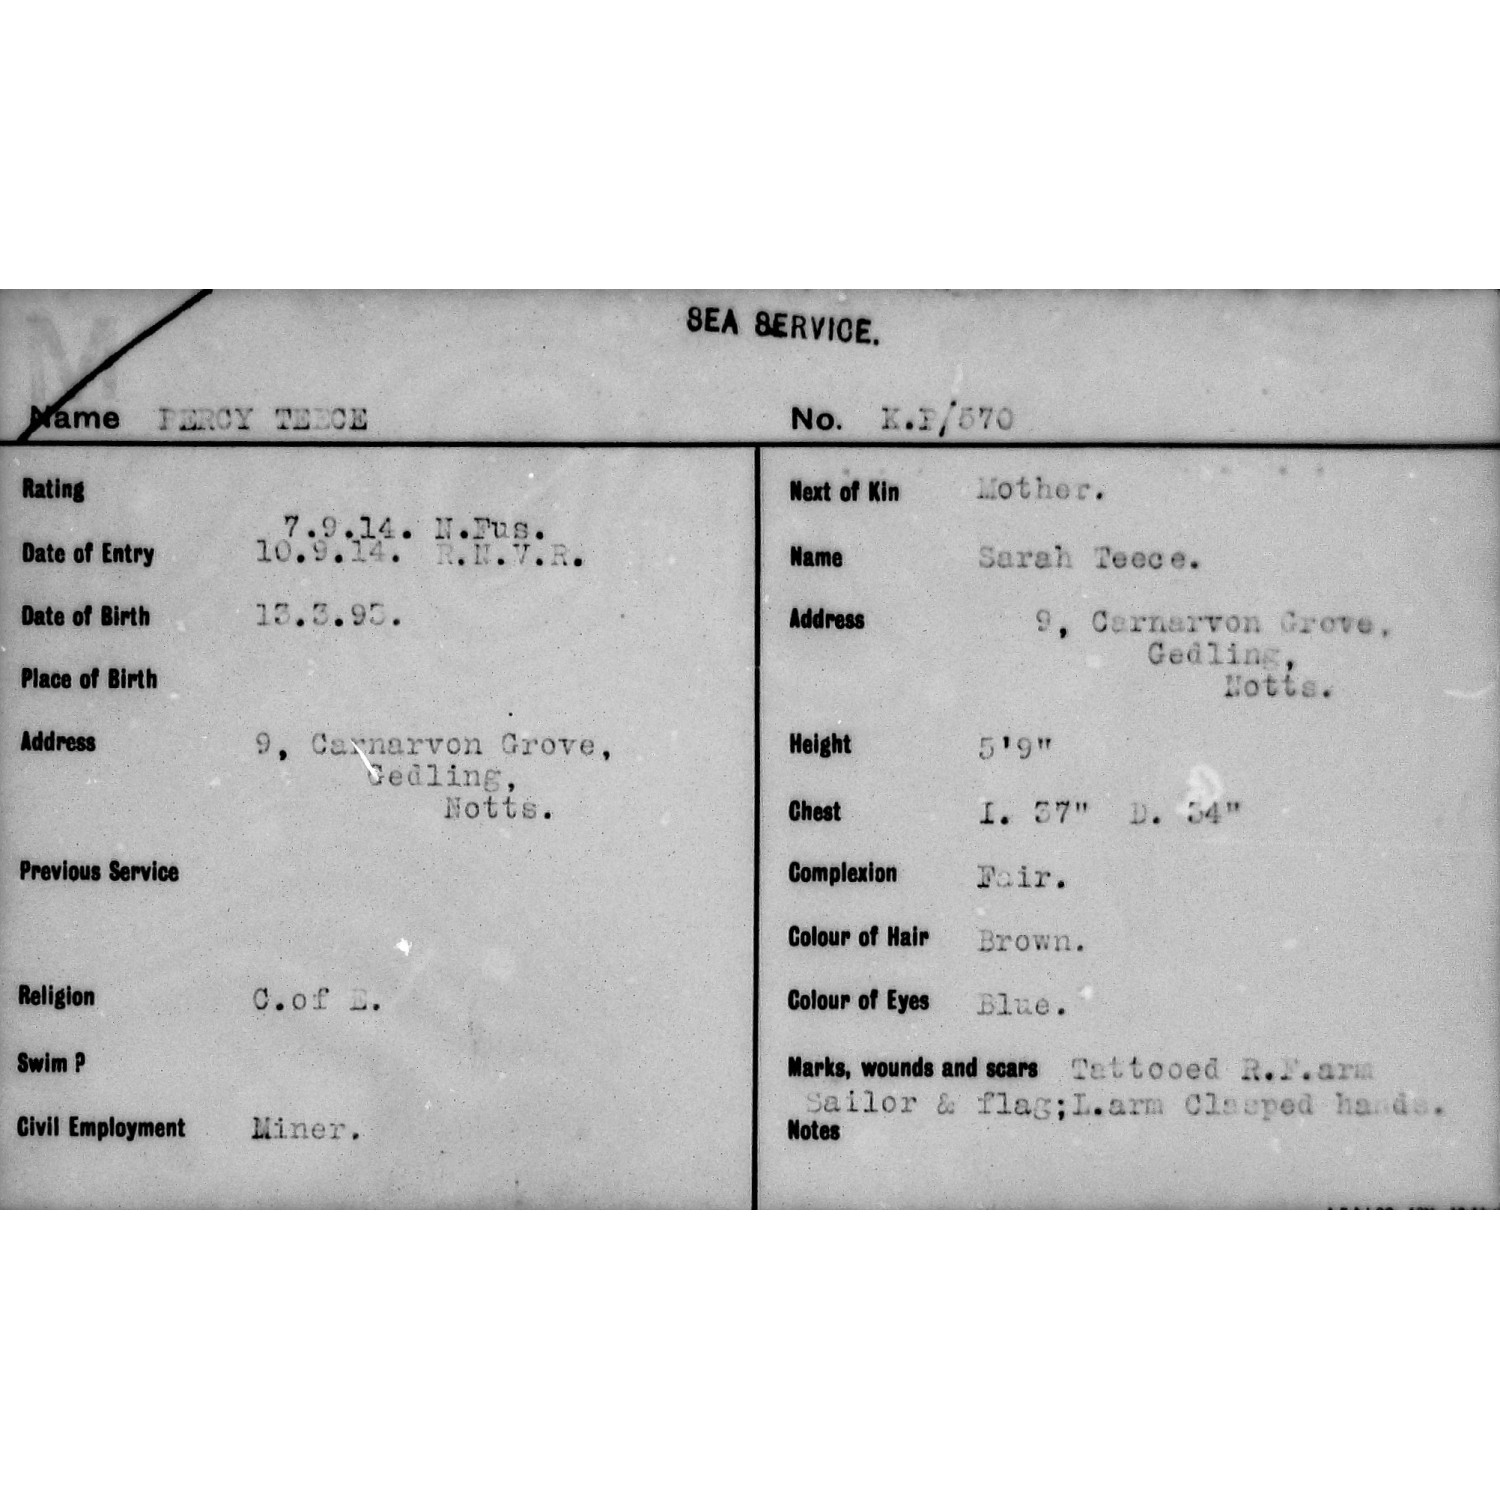 SEA SERVICE.
Name PERCY TEECE No. K.P/570
Rating
Date of Entry 7.9.14. N.Fus.
10.9.14. R.N.V.R.
Date of Birth 13.3.93.
Place of Birth
Address 9, Carnarvon Grove,
Gedling,
Notts.
Previous Service
Religion C.of E.
Swim ?
Civil Employment Miner.
Next of Kin Mother.
Name Sarah Teece.
Address 9, Carnarvon Grove,
Gedling,
Notts.
Height 5'9"
Chest I. 37" D. 34"
Complexion Fair.
Colour of Hair Brown.
Colour of Eyes Blue.
Marks, wounds and scars Tattooed R.F.arm
Sailor & flag;L.arm Clasped hands.
Notes